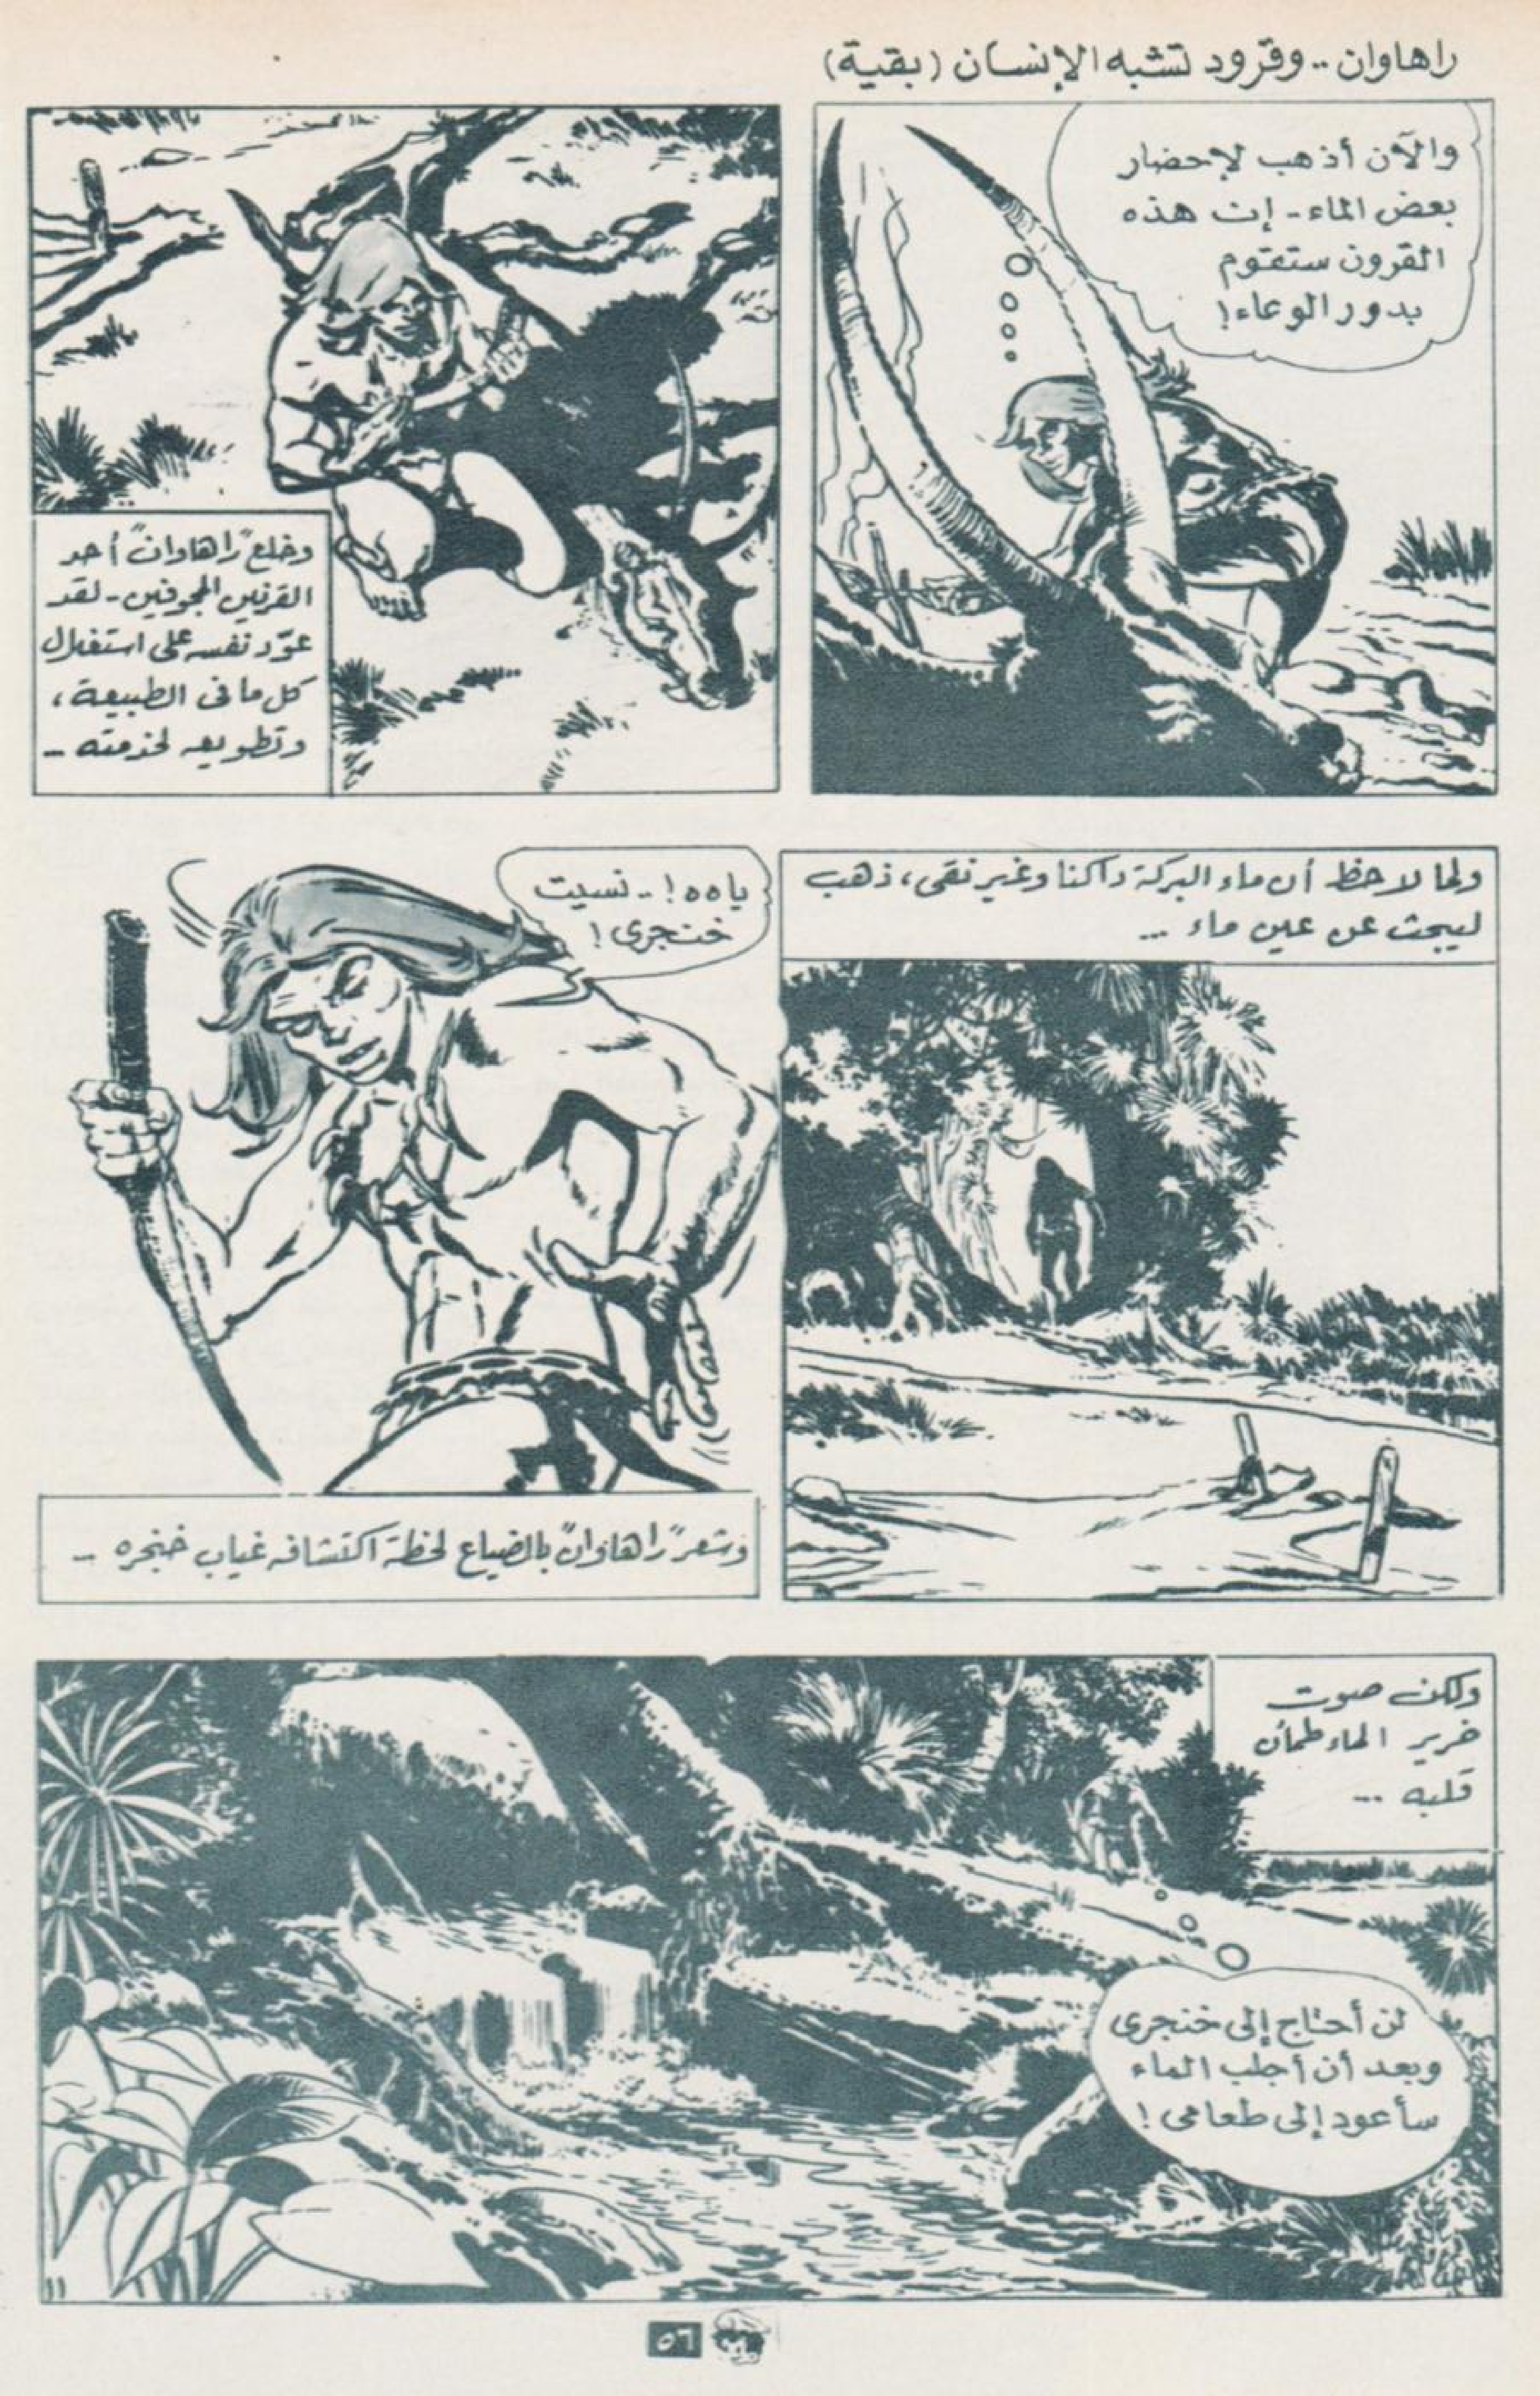 راهاوان .. وقرود تشبه الإنسان (بقية)
والآن أذهب لإحضار
بعض الماء - إن هذه
القرون ستقوم
بدور الوعاء!
وخلع "راهاوان" أحد
القرنين المجوفين - لقد
عوّد نفسه على استغلال
كل ما فى الطبيعة،
وتطويعه لخدمته -
ولما لاحظ أن ماء البركة داكنا وغير نقى، ذهب
ليبحث عن عين ماء ...
ياه ه! .. نسيت
خنجرى!
وشعر "راهاوان" بالضياع لحظة اكتشافه غياب خنجره -
ولكن صوت
خرير الماء طمأن
قلبه ...
لن أحتاج إلى خنجرى
وبعد أن أجلب الماء
سأعود إلى طعامى!
١١
٥٦